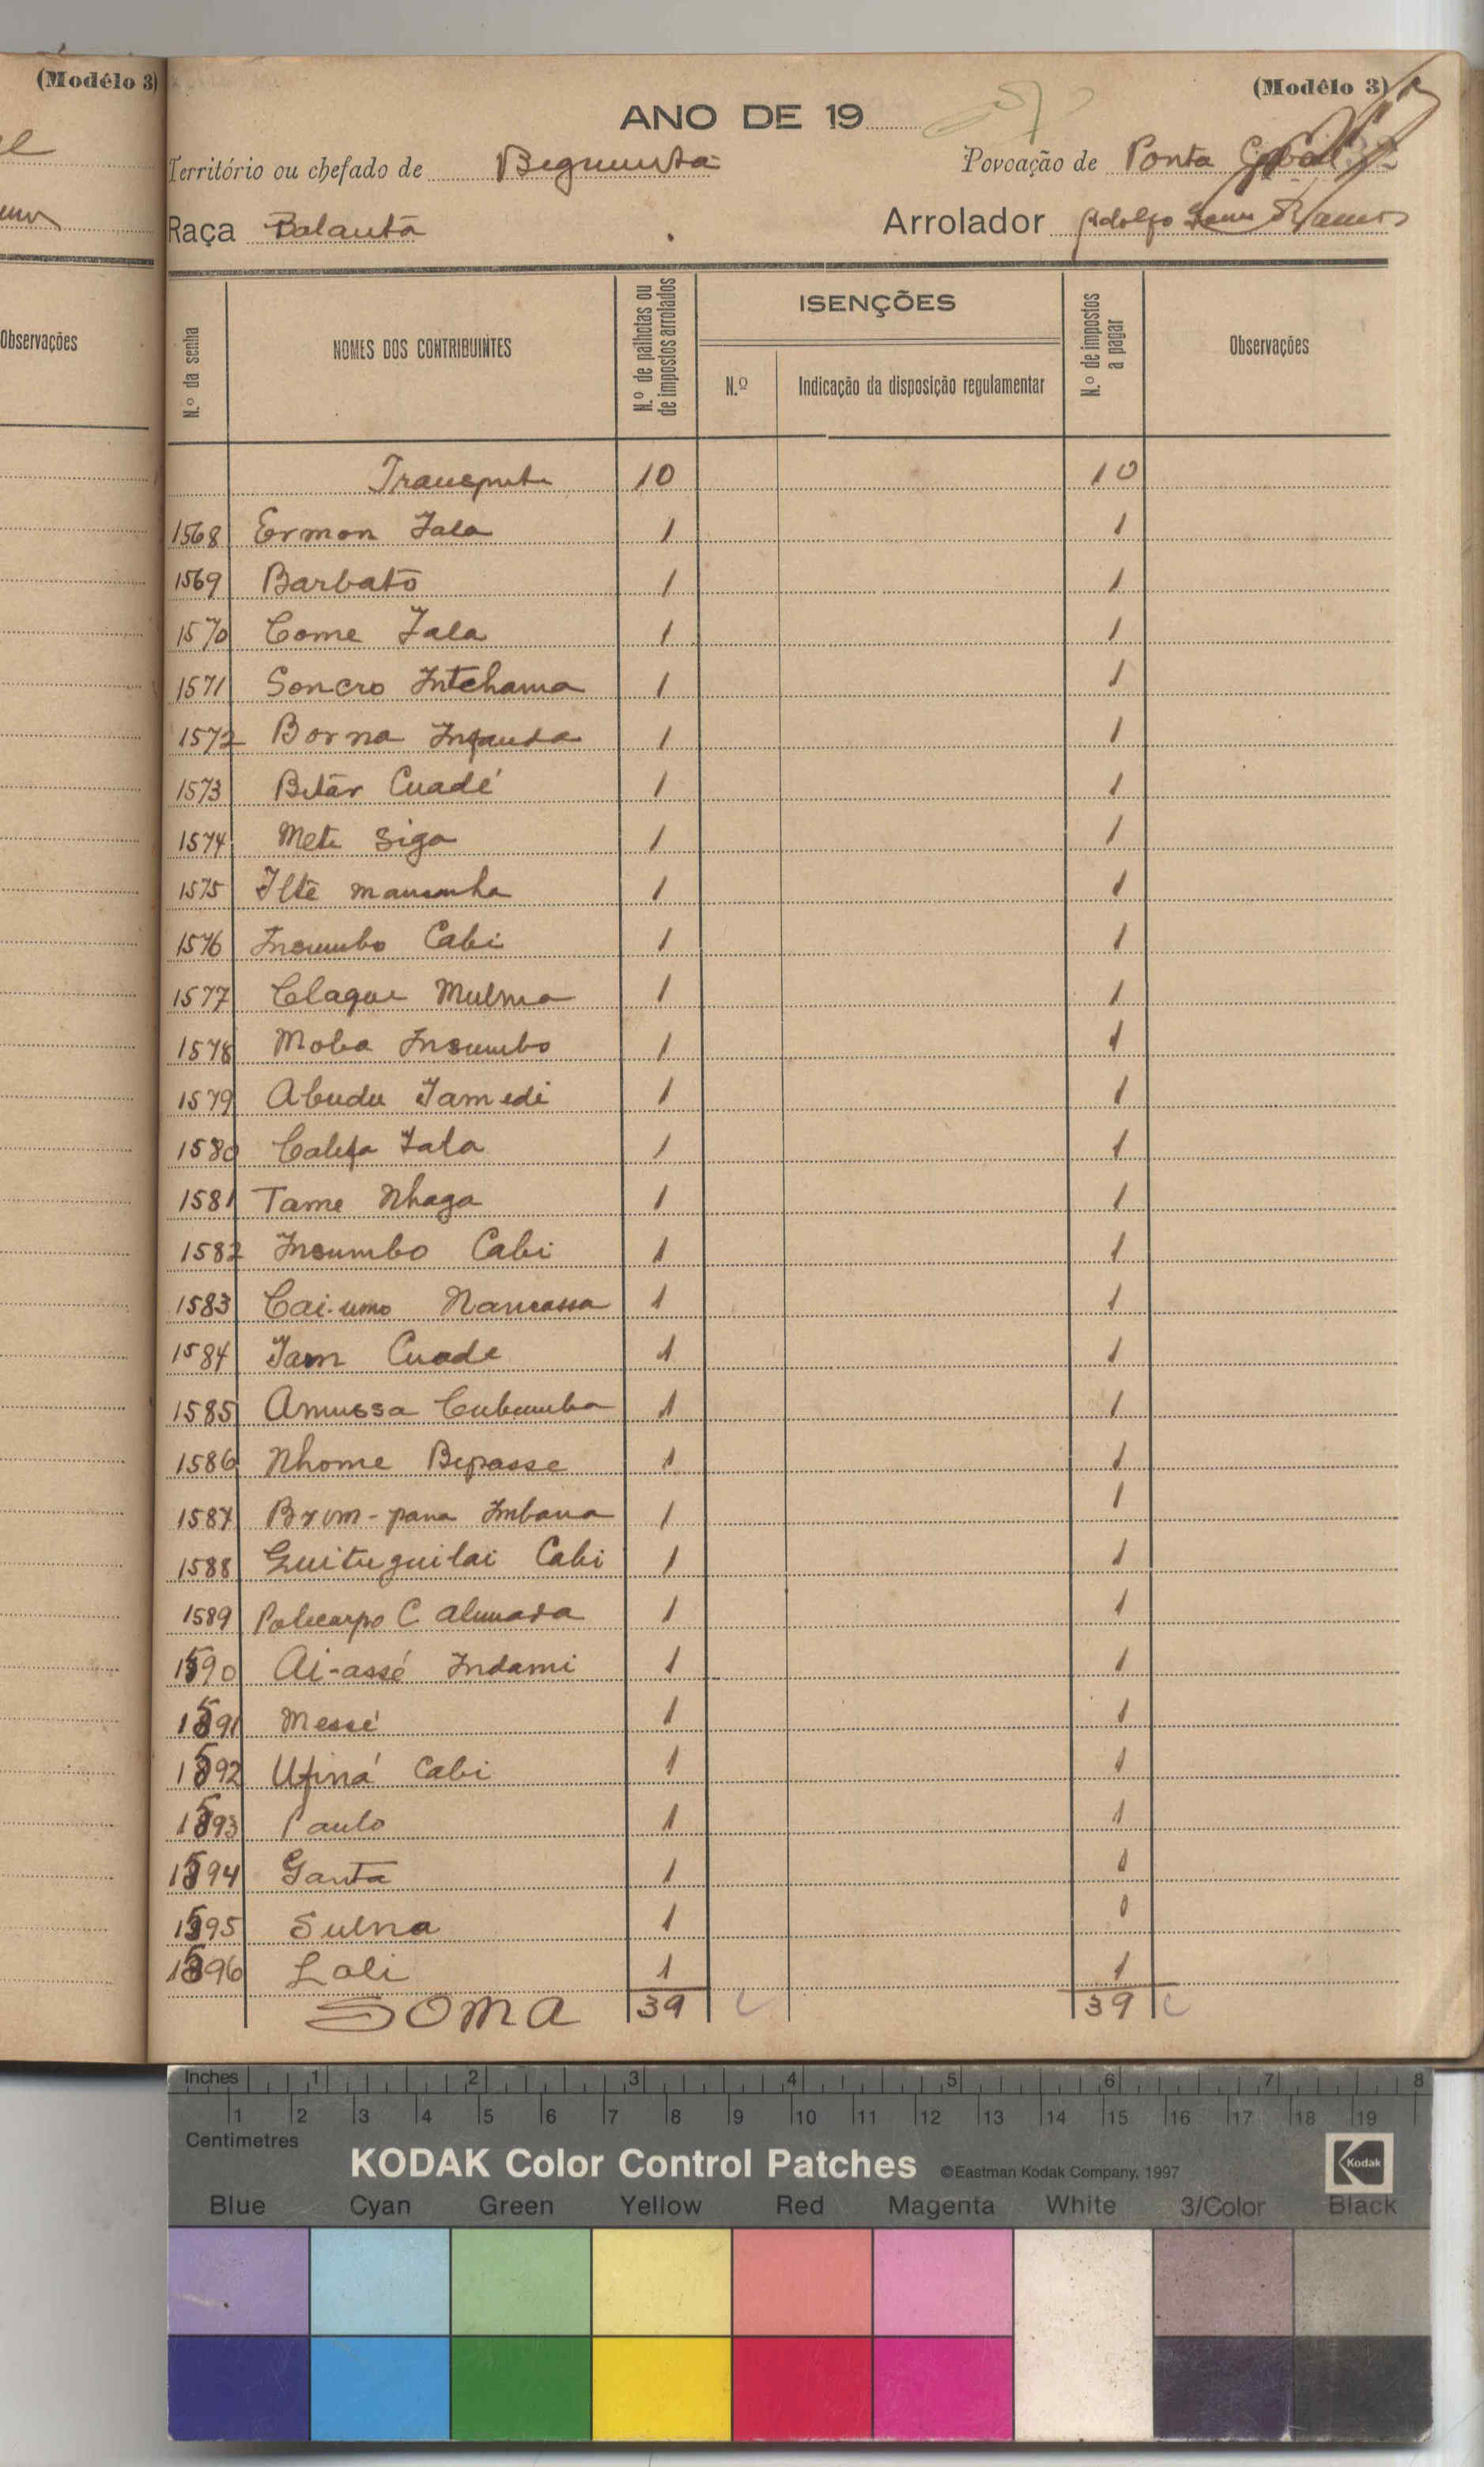 (Modêlo 3)
(Modêlo 3)
ANO DE 19
Território ou chefado de
Povoação de Ponta
Raça Balanta
Arrolador Adolfo Ramos
Observações
N.º da senha
NOMES DOS CONTRIBUINTES
N.º de palhotas ou de impostos arrolados
ISENÇÕES
N.º
Indicação da disposição regulamentar
N.º de impostos a pagar
Observações
Transporte 10 10
1568 Ermon Iala 1 1
1569 Barbato 1 1
1570 Come Iala 1 1
1571 Soncro Intchama 1 1
1572 Borna 1 1
1573 Bitar Cuadé 1 1
1574 Mete Siga 1 1
1575 1 1
1576 Insumbo Cabi 1 1
1577 Claque Mulma 1 1
1578 Moba Insumbo 1 1
1579 Abudu Iamedi 1 1
1580 Califa Iala 1 1
1581 Tame Nhaga 1 1
1582 Insumbo Cabi 1 1
1583 Cai-umo Nancassa 1 1
1584 Iam Cuade 1 1
1585 Amussa 1 1
1586 Nhome Bipasse 1 1
1587 Brom-pana Imbana 1 1
1588 Guituguilai Cabi 1 1
1589 Policarpo C Almada 1 1
1590 Ai-assé Indami 1 1
1591 Messé 1 1
1592 Ufiná Cabi 1 1
1593 Paulo 1 1
1594 Ganta 1 1
1595 Sulna 1 1
1596 Lali 1 1
SOMA 39 39
Inches 1 2 3 4 5 6 7 8
1 2 3 4 5 6 7 8 9 10 11 12 13 14 15 16 17 18 19
Centimetres
KODAK Color Control Patches ©Eastman Kodak Company, 1997 Kodak
Blue Cyan Green Yellow Red Magenta White 3/Color Black